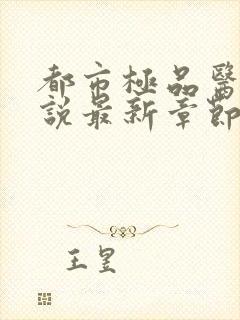 都市極品醫
說最新章節
王